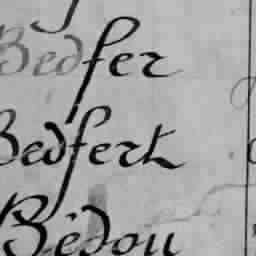 Bedfer
Bedfert
Bèdou